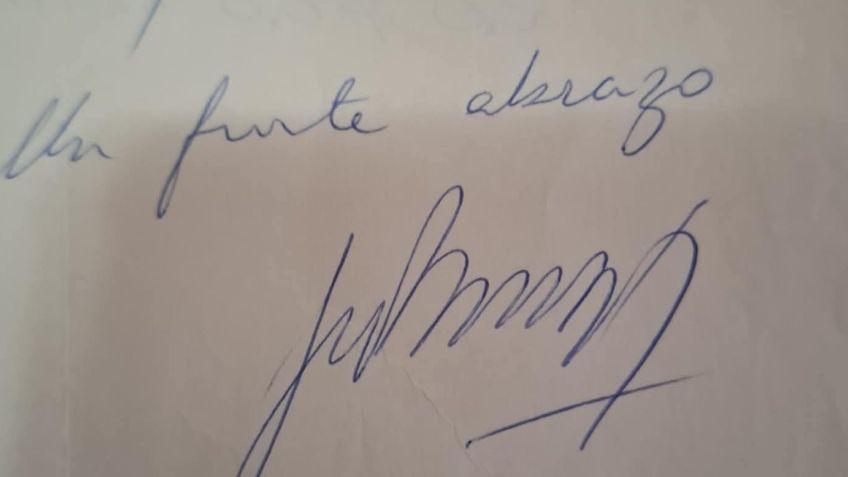 Un fuerte abrazo